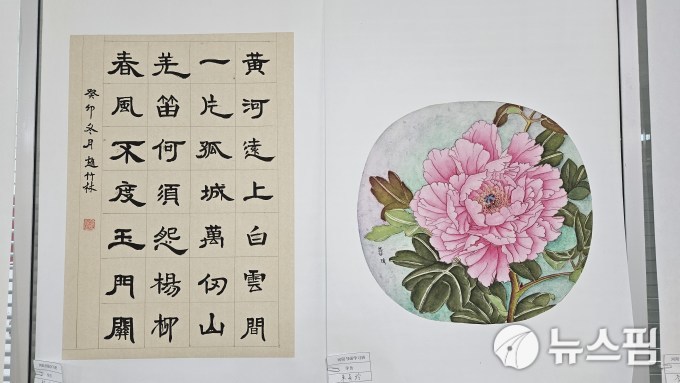 黄河遠上白雲間
一片孤城萬仞山
羌笛何須怨楊柳
春風不度玉門關
癸卯冬月趙竹林
뉴스핌